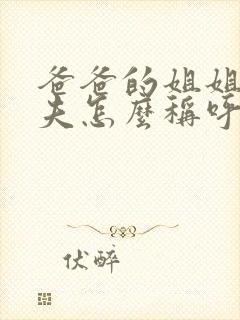 爸爸的姐姐
夫怎麼稱呼
伏醉